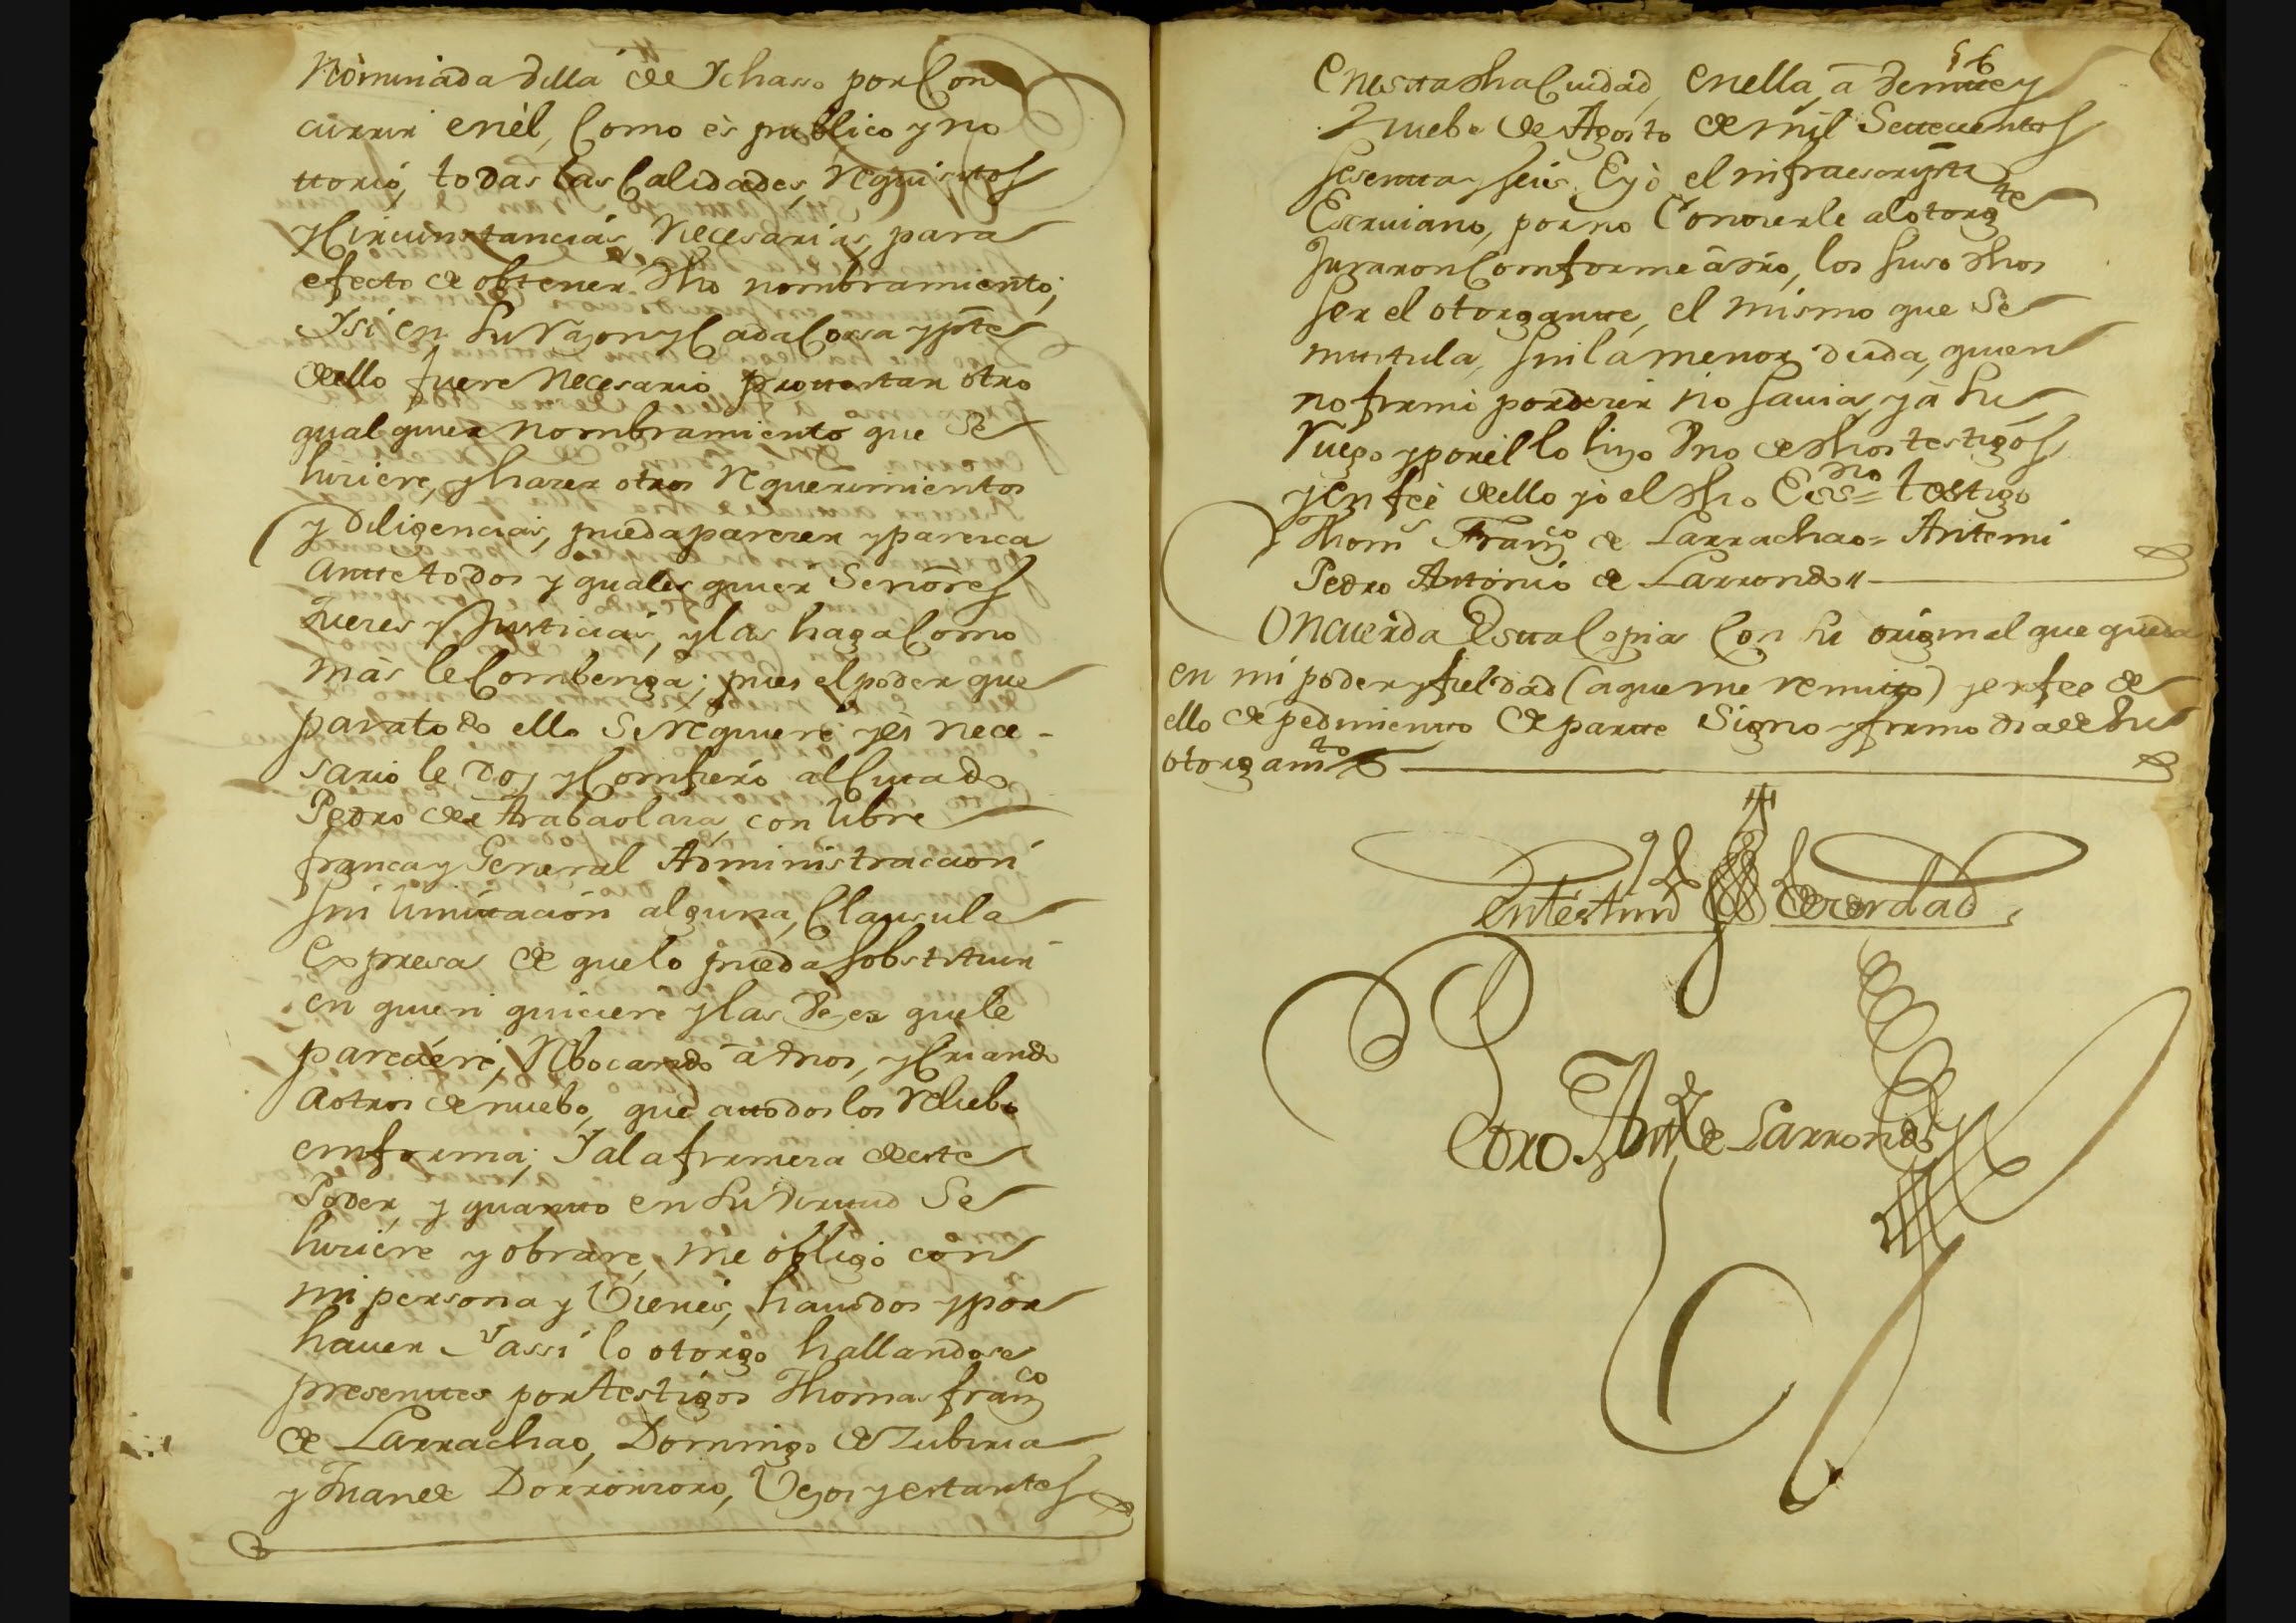 Nominada Villa de Ychasso por Con
currir enèl, Como ès publico y no
ttorio, todas las Calidades, Requisitos
y Circunstancias, Necesarias, para
efecto de obtener dho nombramiento;
Ysi en Su Razon y Cada Cossa y pte
dello fuere Necesario, protestar otro
qualquier nombramiento que Se
hiciere, y hacer otros Requerimientos
y Diligencias, pueda parecer y paresca
Ante todos y quales quier Señores
Jueces y Justicias, y las haga Como
màs le Combenga; pues el poder que
para todo ello Se Requiere yes nece-
sario le Doy y Comfiero al Cittado
Pedro de Arabaolaza, con libre
franca y General Administraccion
sin limitacion alguna, Clausula
Expresa de que lo pueda sobstituir
en quien quiciere y las Veces que le
pareciere, Rebocando à unos, y Criando
Aotros de nuebo, que attodos los Reliebo
emforma; Y ala firmeza deeste
Poder, y quanto en Su Virttud Se
hiciere y obrare, me obligo con
mi persona y Vienes, hauidos y por
hauer Yassi lo otorgo hallandose
presentes por testigos Thomas franco
de Larrachao, Domingo de Zubiria
y Juan de Dorronsoro, Vezos y estantes
56
Enesta dha Ciudad, enella, à Veinte y
Nuebe de Agosto de mil Setecientos
sesenta y seis. E yò el infraescripto
Escriuano, por no Conocerle al otorgte
Juraron Comforme à dro, los suso dhos
ser el otorgante, el mismo que Se
intitula, sin la menor duda, quien
no firmò por decir no sauia, y à Su
Ruego y por èl lo hizo Vno de dhos testigos
y en feè dello yò el dho Essno = testigo
Thoms Franco de Larrachao = Antemi
Pedro Antonio de Larrondo "
Concuerda Esta Copia Con Su original que queda
en mi poder y fieldad (a que me remito) y en fee de
ello de pedimiento de parte Signo y firmo dia de Su
otorgamto
Entestimo de Verdad
Pedro Anto de Larrondo